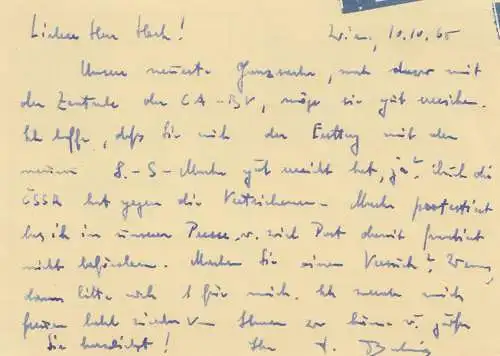 Lieber Herr Hock! Wien, 10.10.65
Unsere neueste Ganzsache, noch dazu mit
der Zentrale der CA-BV, möge sie gut erreichen.
Ich hoffe, daß Sie auch der Erstttag mit der
neuen S.-S-Marke gut erreicht hat, ja? Auch die
ČSSR hat gegen die Vertriebenen-Marke protestiert
las ich in unserer Presse u. wird Post damit frankiert
nicht befördern. Machen Sie einen Versuch? Wenn,
dann bitte auch 1 für mich. Ich würde mich
freuen bald wieder von Ihnen zu hören u. grüße
Sie herzlichst! Ihr